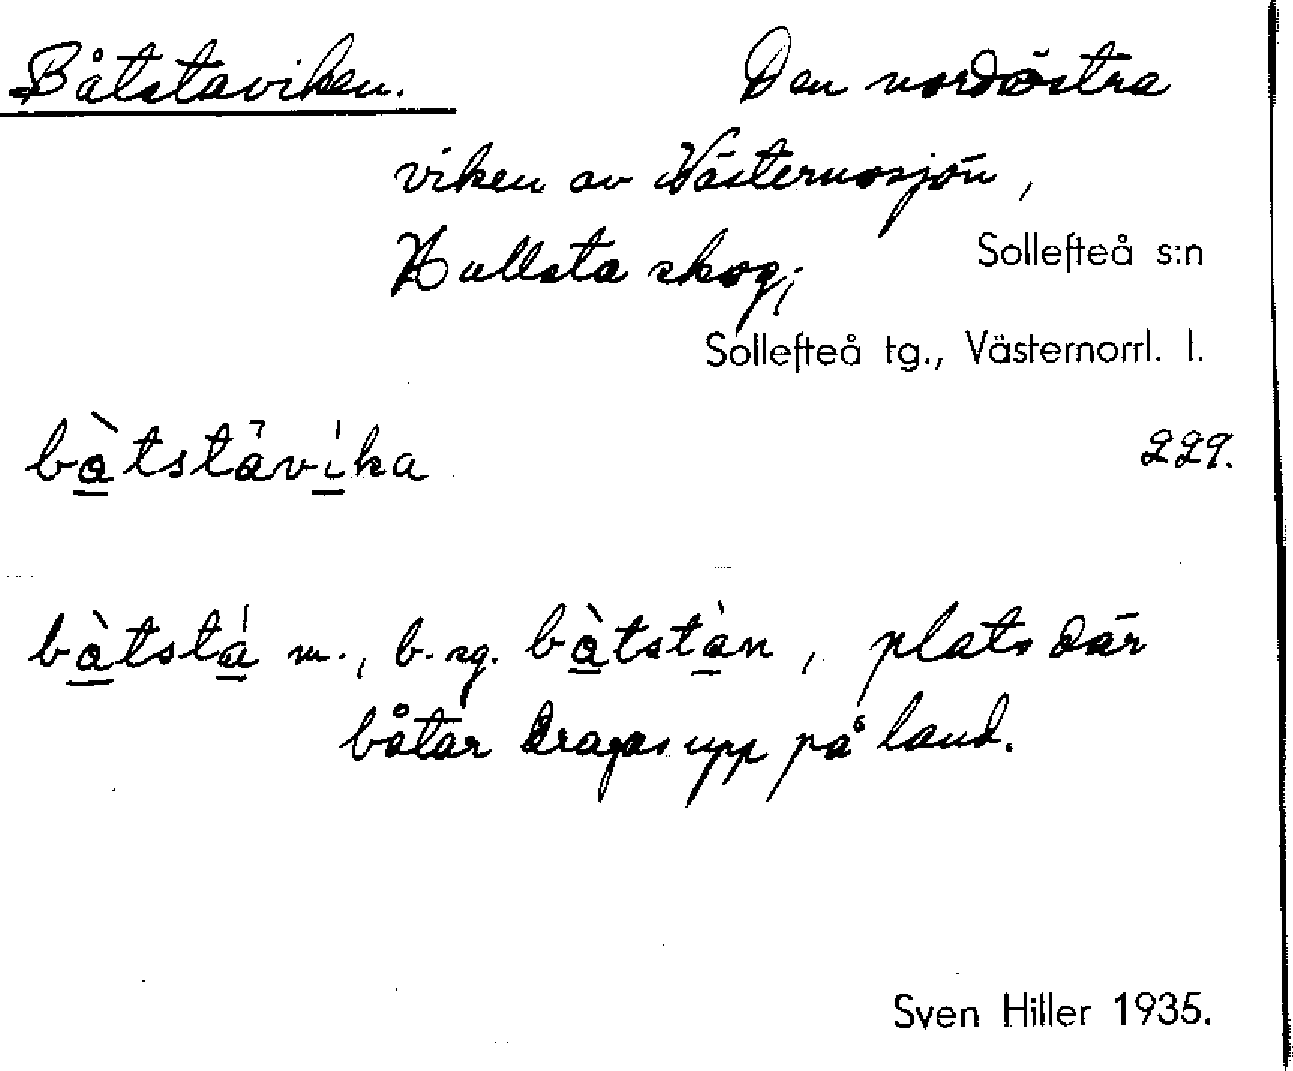 Båtstaviken. Den nordöstra
viken av Västernosjön,
Hullsta skog,
Sollefteå s:n
Sollefteå tg., Västernorrl. l.
bà̱tstävi̱ka 229.
bà̱tsta̱ m., b. sg. bà̱tsta̱n, plats där
båtar dragas upp på land.
Sven Hiller 1935.